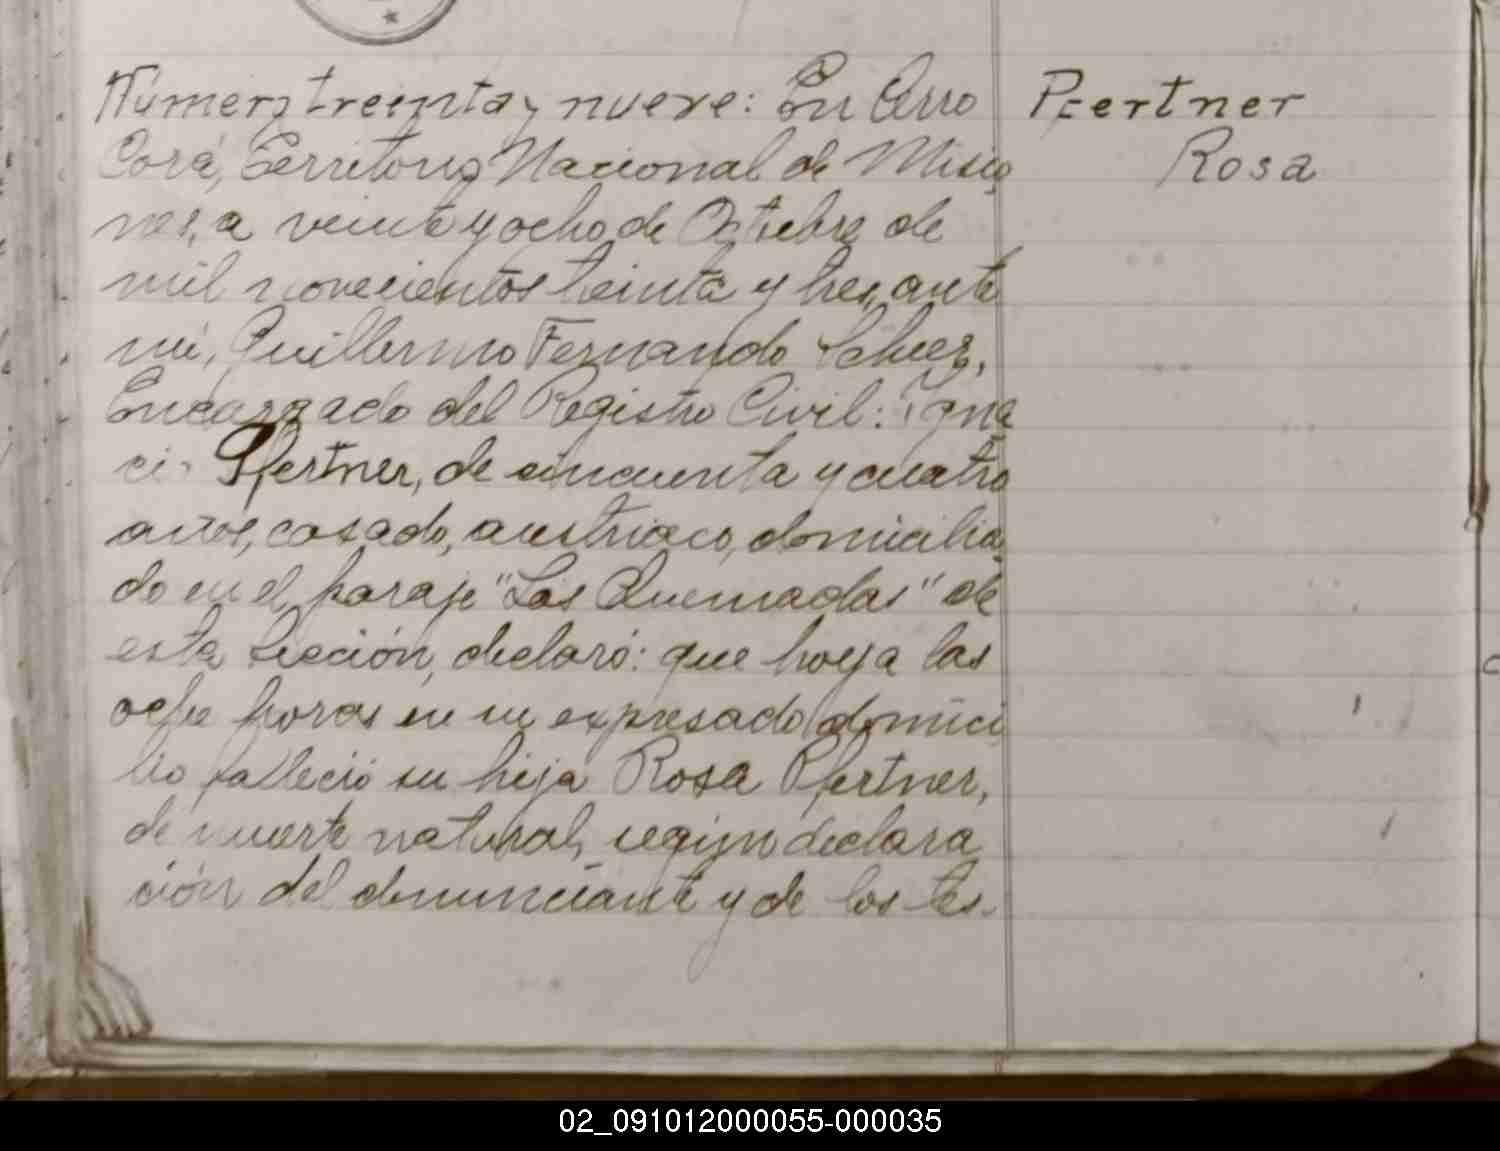 Número treinta y nueve: En Cerro
Corá, Territorio Nacional de Misio
nes, a veinte y ocho de Octubre de
mil novecientos treinta y tres, ante
mí, Guillermo Fernando
Encargado del Registro Civil: Igna
cio Pfertner, de cincuenta y cuatro
años, casado, austriaco, domicilia
do en el paraje "Las Quemadas" de
esta Sección, declaró: que hoy a las
ocho horas en su expresado domici
lio falleció su hija Rosa Pfertner,
de muerte natural, según declara
ción del denunciante y de los tes-
Pfertner
Rosa
02_091012000055-000035